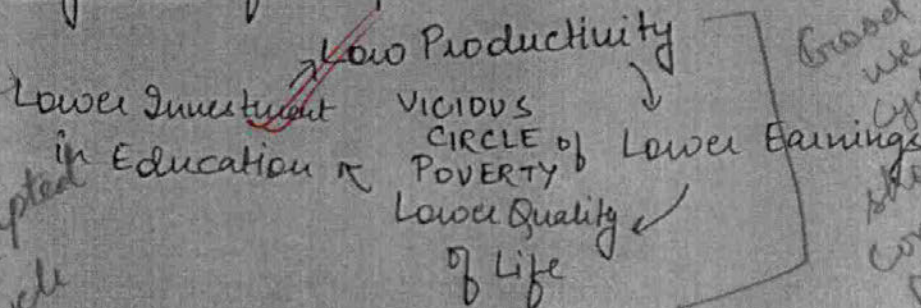 Low Productivity
Lower Investment
in Education
VICIOUS
CIRCLE of
POVERTY
Lower Earnings
Lower Quality
of Life
Good
we